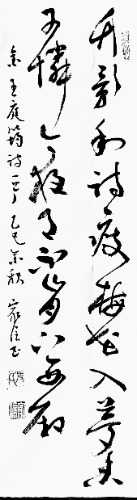 竹影和詩瘦梅花入夢香
可憐今夜月不肯下西廂
金王庭筠詩一首乙巳秋